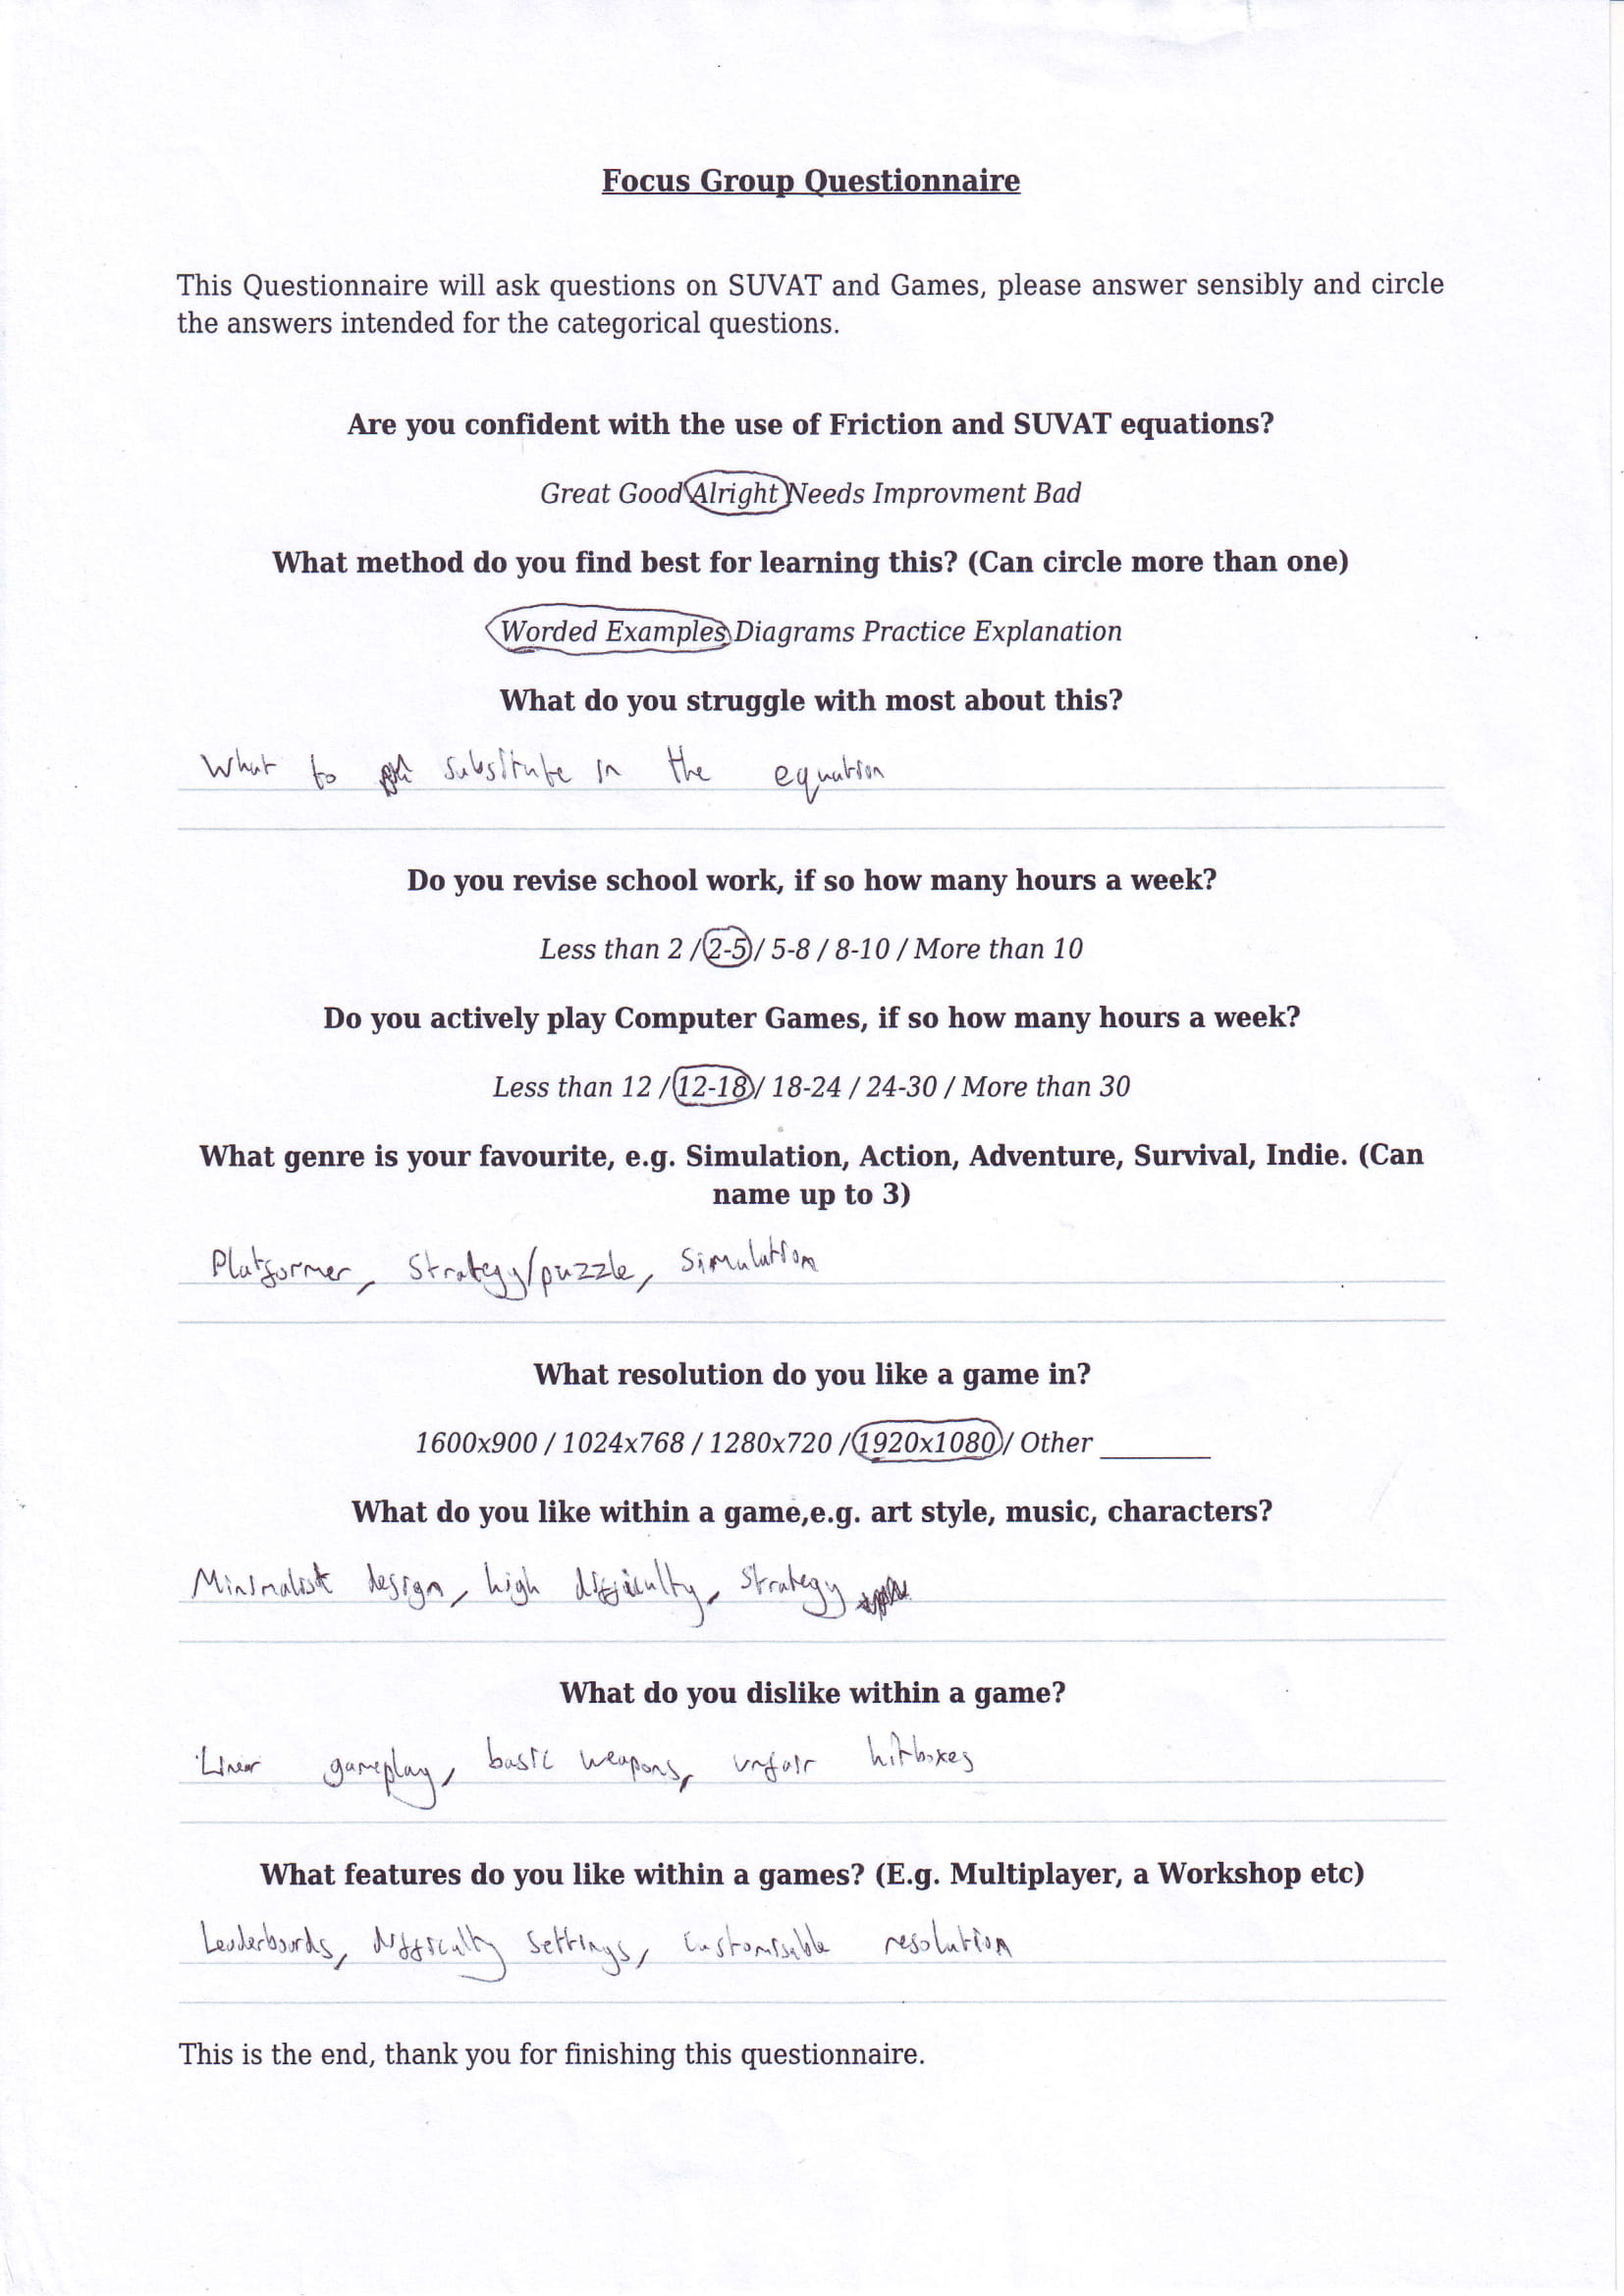 Focus Group Questionnaire
This Questionnaire will ask questions on SUVAT and Games, please answer sensibly and circle
the answers intended for the categorical questions.
Are you confident with the use of Friction and SUVAT equations?
Great Good Alright Needs Improvment Bad
What method do you find best for learning this? (Can circle more than one)
Worded Examples Diagrams Practice Explanation
What do you struggle with most about this?
What to substitute in the equation
Do you revise school work, if so how many hours a week?
Less than 2 / 2-5 / 5-8 / 8-10 / More than 10
Do you actively play Computer Games, if so how many hours a week?
Less than 12 / 12-18 / 18-24 / 24-30 / More than 30
What genre is your favourite, e.g. Simulation, Action, Adventure, Survival, Indie. (Can
name up to 3)
Platformer, Strategy/puzzle, Simulation
What resolution do you like a game in?
1600x900 / 1024x768 / 1280x720 / 1920x1080 / Other ________
What do you like within a game,e.g. art style, music, characters?
Minimalist design, high difficulty, Strategy
What do you dislike within a game?
Linear gameplay, basic weapons, unfair hitboxes
What features do you like within a games? (E.g. Multiplayer, a Workshop etc)
Leaderboards, difficulty settings, customisable resolution
This is the end, thank you for finishing this questionnaire.